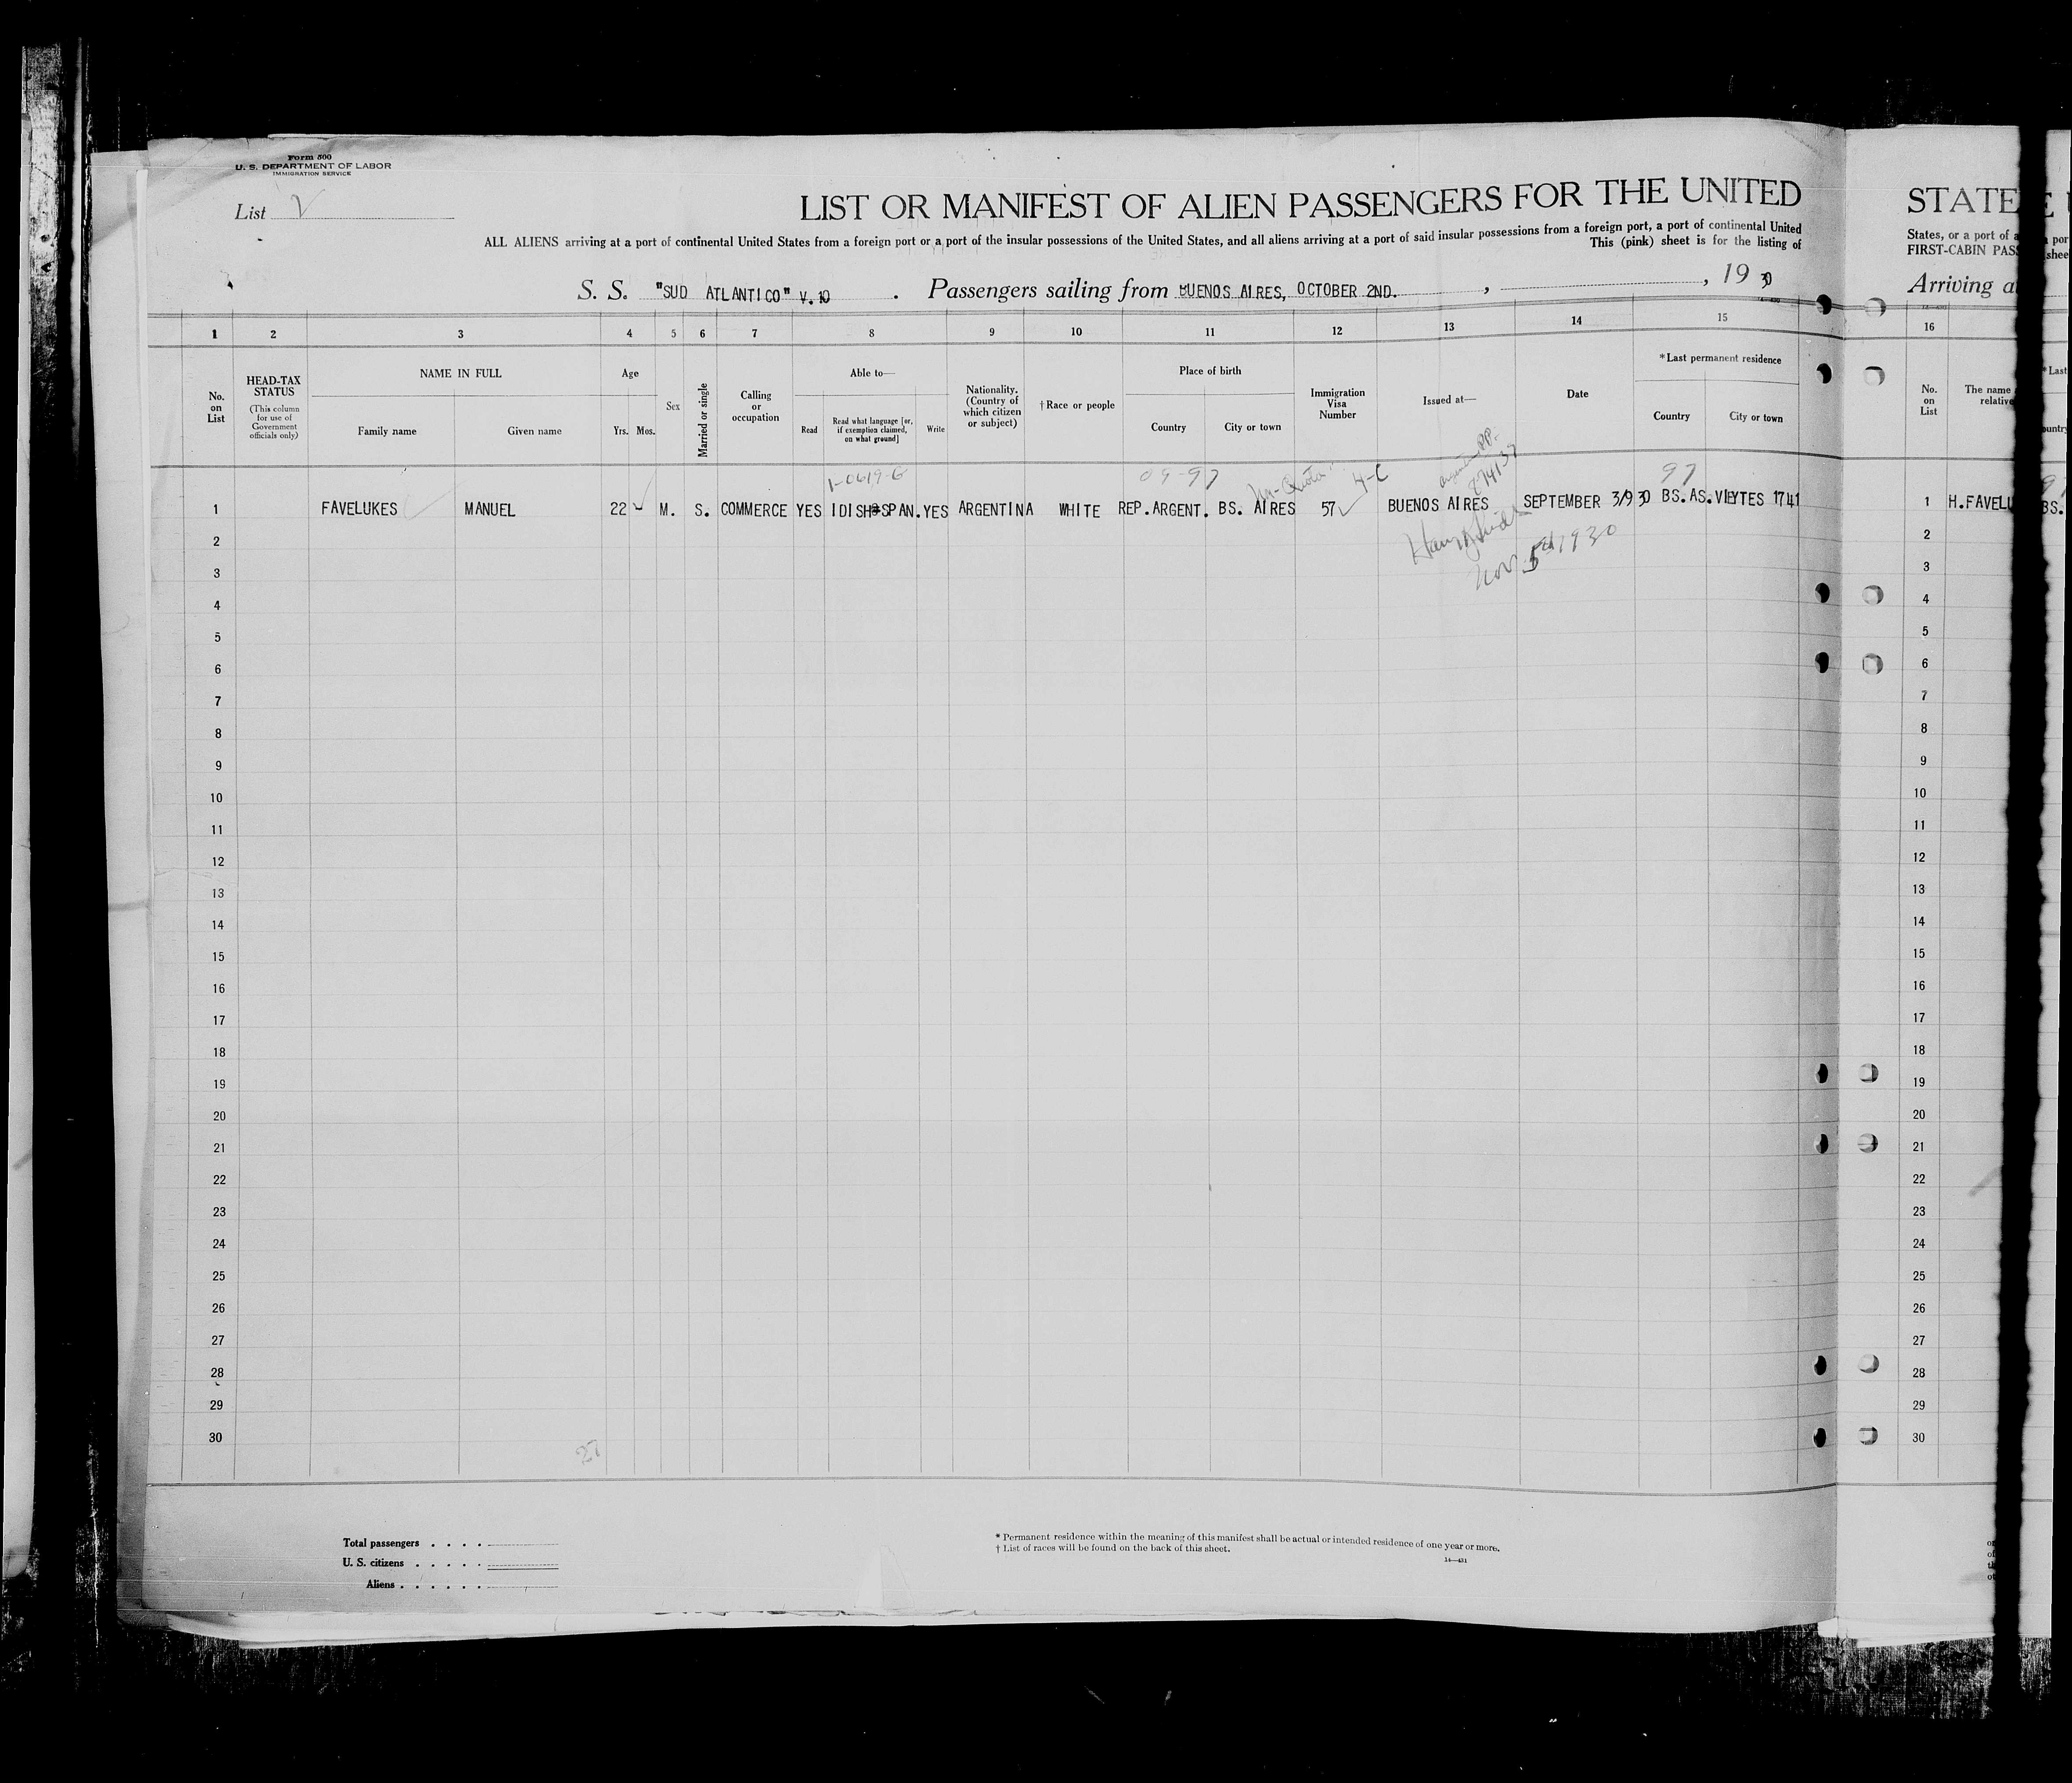 Form 500
U. S. DEPARTMENT OF LABOR
IMMIGRATION SERVICE
List V
LIST OR MANIFEST OF ALIEN PASSENGERS FOR THE UNITED
ALL ALIENS arriving at a port of continental United States from a foreign port or a port of the insular possessions of the United States, and all aliens arriving at a port of said insular possessions from a foreign port, a port of continental United
This (pink) sheet is for the listing of
S. S. "SUD ATLANTICO" V.10 . Passengers sailing from BUENOS AIRES, OCTOBER 2ND. , , 19 30
1 2 3 4 5 6 7 8 9 10 11 12 13 14 15
No. on List
HEAD-TAX STATUS
(This column for use of Government officials only)
NAME IN FULL
Family name
Given name
Age
Yrs. Mos.
Sex
Married or single
Calling or occupation
Able to—
Read
Read what language [or, if exemption claimed, on what ground]
Write
Nationality. (Country of which citizen or subject)
† Race or people
Place of birth
Country
City or town
Immigration Visa Number
Issued at—
Date
*Last permanent residence
Country
City or town
1-0619-G 09-97 4-C 97
1 FAVELUKES MANUEL 22 M. S. COMMERCE YES IDISH SPAN. YES ARGENTINA WHITE REP.ARGENT. BS. AIRES 57 BUENOS AIRES SEPTEMBER 3/930 BS.AS. VIEYTES 1741
Nov 5th 1930
2
3
4
5
6
7
8
9
10
11
12
13
14
15
16
17
18
19
20
21
22
23
24
25
26
27
28
29
30
27
Total passengers . . . .
U. S. citizens . . . . .
Aliens . . . . . .
* Permanent residence within the meaning of this manifest shall be actual or intended residence of one year or more.
† List of races will be found on the back of this sheet.
14—431
STATE
States, or a port of a
FIRST-CABIN PAS
Arriving a
16
No. on List
The name
relative
1 H.FAVELU
2
3
4
5
6
7
8
9
10
11
12
13
14
15
16
17
18
19
20
21
22
23
24
25
26
27
28
29
30
*Last
BS.